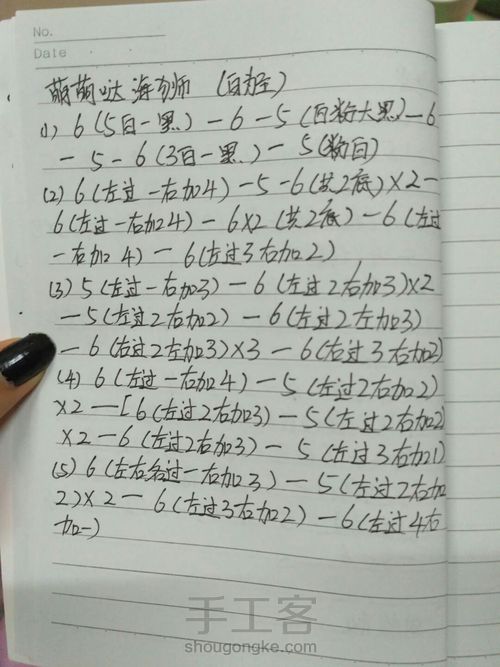 No.
Date
萌萌哒海力师 (自灻)
(1) 6(5白一黑)-6-5(白粉大黑)-6
-5-6(3白一黑)-5(粉白)
(2) 6(左过一右加4)-5-6(共2底)×2-
6(左过一右加4)-6×2(共2底)-6(左过
一右加4)-6(左过3右加2)
(3) 5(左过一右加3)-6(左过2右加3)×2
-5(左过2右加2)-6(左过2左加3)
-6(右过2左加3)×3-6(右过3右加2)
(4) 6(左过一右加4)-5(左过2右加2)
×2-[6(左过2右加3)-5(左过2右加2)
×2-6(左过2右加3)-5(左过3右加1)
(5) 6(左右各过一右加3)-5(左过2右加
2)×2-6(左过3右加2)-6(左过4右
加一)
手工客
shougongke.com